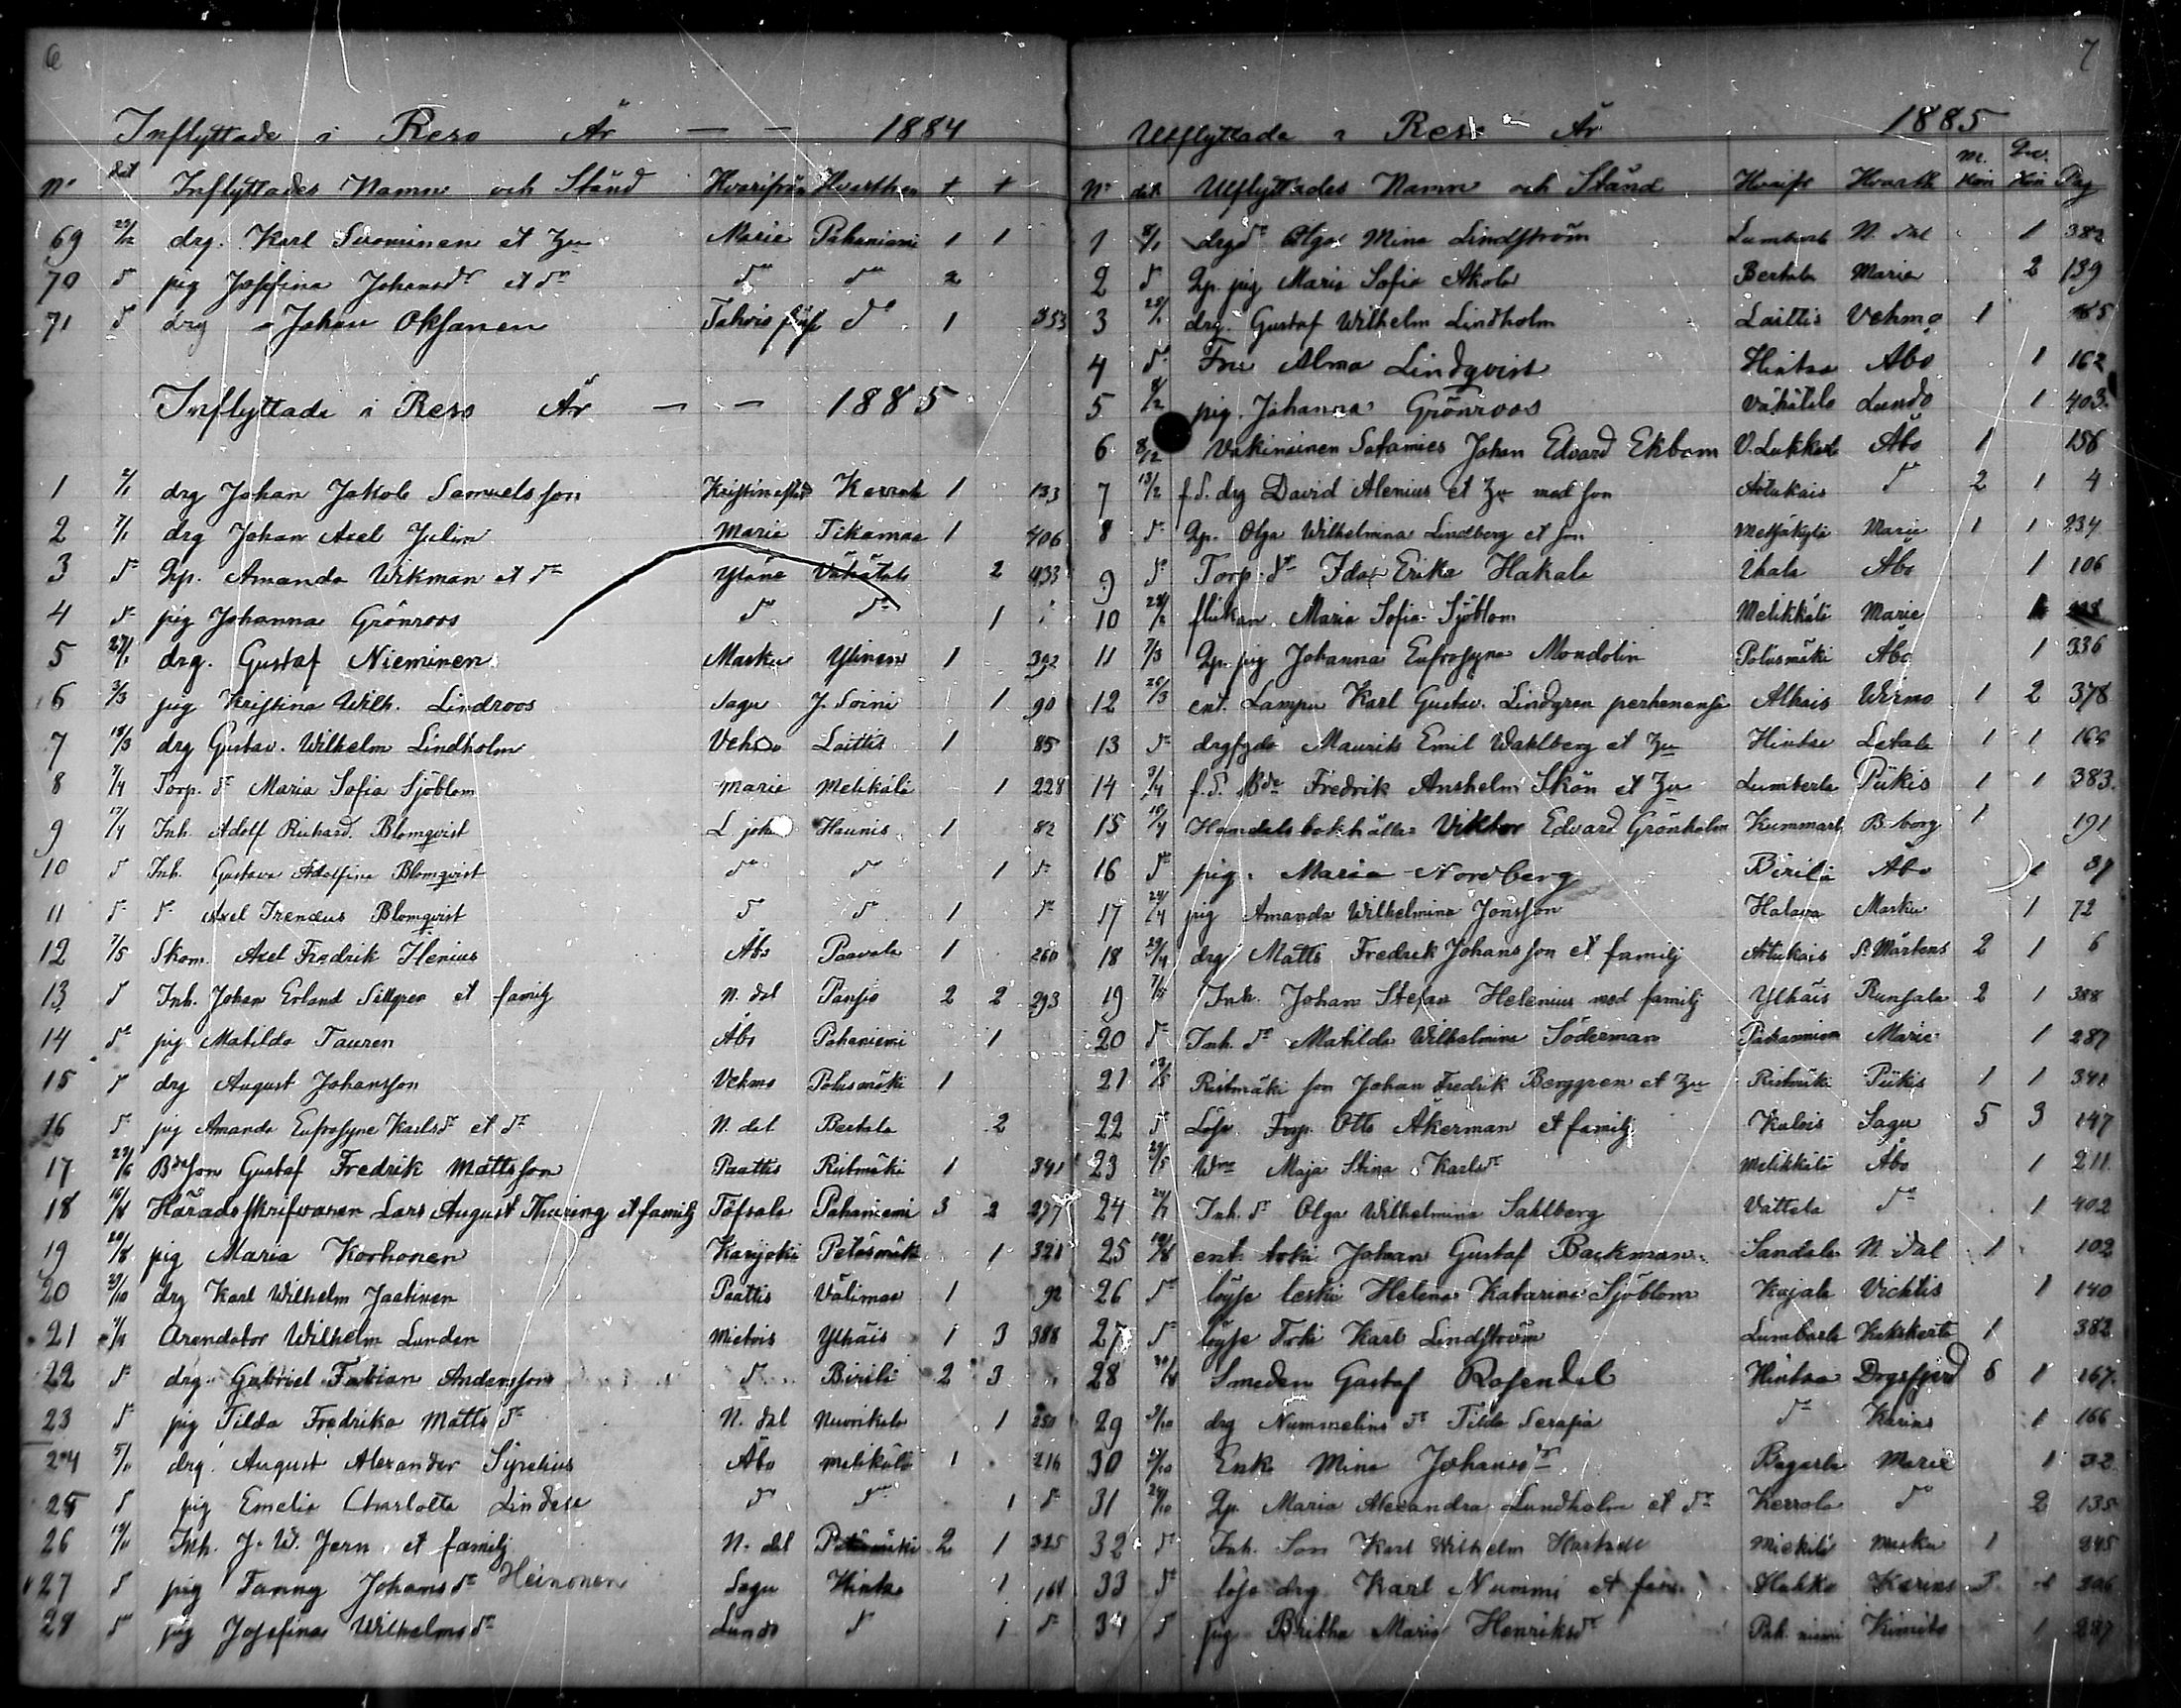 6
Inflyttade i Reso År — — 1884
No dat Inflyttades Namn och Stånd Hvarifrån Hvarthen + +
69 29/12 drg. Karl Suominen et Hu Marie Pahaniemi 1 1
70 do pig Josefina Johansdr et dr do do 2
71 do drg Johan Oksanen do 1 353
Inflyttade i Reso År — — 1885
1 2/1 drg Johan Jakob Samuelsson Kristinestad Kerrola 1 133
2 7/1 drg Johan Axel Julin Marie Tikanmaa 1 406
3 do Qp. Amanda Wikman et dr Yläne Vähätalo 2 433
4 do pig Johanna Grönroos do do 1
5 27/1 drg. Gustaf Nieminen Masku Ylinen 1 392
6 3/3 pig Kristina Wilh. Lindroos Sagu J. Soini 1 90
7 18/3 drg Gustav. Wilhelm Lindholm Vehmo Laittis 1 85
8 7/4 Torp. dr Maria Sofia Sjöblom Marie Melikälä 1 228
9 17/4 Inh. Adolf Richard Blomqvist Haunis 1 82
10 do Inh. Gustava Adolfina Blomqvist do do 1 do
11 do do Axel Irenæus Blomqvist do do 1 do
12 7/5 Skom. Axel Fredrik Ilenius Åbo Paavola 1 260
13 do Inh. Johan Erland Sillgren et familj N. dal Pansio 2 2 293
14 do pig Matilda Tauren Åbo Pahaniemi 1
15 do drg August Johansson Vehmo Polusmäki 1
16 do pig Amanda Eufrosyne Karlsdr et dr N. dal Bertala 2
17 Bdeson Gustaf Fredrik Mattsson Paattis Ristmäki 1 341
18 Häradsskrifvaren Lars August Thuring et familj Töfsala Pahaniemi 3 2 297
19 20/8 pig Maria Korhonen Karijoki 1 321
20 drg Karl Wilhelm Jaatinen Paattis Välimaa 1 92
21 Arendator Wilhelm Lunden Mietois Ylhäis 1 3 388
22 do drg. Gabriel Fabian Andersson do Birilä 2 3
23 do pig Tilda Fredrika Mattsdr N. dal Nuorikkala 1 250
24 5/11 drg. August Alexander Syrelius Åbo Melikälä 1 216
25 do pig Emelia Charlotta do do 1 do
26 Inh. J. W. Jern et familj N. dal Petäsmäki 2 1 325
27 do pig Fanny Johansdr Heinonen Sagu Hintsa 1 164
28 do pig Josefina Wilhelmsdr Lundo do 1 do
7
Utflyttade i Reso År 1885
No dat. Utflyttades Namn och Stånd Hvarifr Hvarth M. Kön Qv. Kön Pag
1 8/1 drgdr Olga Mina Lindström Lumbarla N. dal 1 382
2 do Qp. pig Maria Sofia Akola Bertala Marie 2 139
3 drg. Gustaf Wilhelm Lindholm Laittis Vehmo 1 85
4 do Fru Alma Lindqvist Hintsa Åbo 1 162
5 pig. Johanna Grönroos Vähätalo Lundo 1 403
6 Vakinainen Satamies Johan Edvard Ekbom V. Lukkarla Åbo 1 156
7 13/2 f.d. drg David Alenius et Hu med son Artukais do 2 1 4
8 do Qp. Olga Wilhelmina Lindberg et son Metsäkylä Marie 1 1 234
9 do Torp. dr Ida Erika Hakala Uhala Åbo 1 106
10 28/2 flickan Maria Sofia Sjöblom Melikkälä Marie
11 7/3 Qp. pig Johanna Eufrosyna Mondolin Polusmäki Åbo 1 336
12 26/3 ent. Lampu Karl Gustav. Lindgren perhenensä Alhais Wirmo 1 2 378
13 do drgsgde Maurits Emil Wahlberg et Hu Hintsa Letala 1 1 166
14 f.d. Bde Fredrik Anshelm Skön et Hu Lumberla Pikis 1 1 383.
15 Handelsbokhållar Viktor Edvard Grönholm Kummarl B. borg 1 191
16 do pig. Maria Nordberg Birilä Åbo 1 87
17 24/4 pig Amanda Wilhelmina Jonsson Halava Masku 1 72
18 29/4 drg Matts Fredrik Johansson et familj Artukais St Mårtens 2 1 6
19 7/5 Inh. Johan Stefan Helenius med familj Ylhäis Runsala 2 1 388
20 do Inh. dr Matilda Wilhelmina Söderman Pahaniemi Marie 1 287
21 13/5 Ristmäki son Johan Fredrik Berggren et Hu Ristmäki Pikis 1 1 341
22 do Löse Torp. Otto Åkerman et familj Kalois Sagu 5 3 147
23 29/5 Wna Maja Stina Karlsdr Melikkälä Åbo 1 211
24 Inh. dr Olga Wilhelmina Sahlberg Vattela do 1 402
25 ent. torki Johan Gustaf Backman Sandala N. dal 1 102
26 do löyse leski Helena Katarina Sjöblom Kajala Vichtis 1 140
27 do löyse Torki Karl Lindström Lumbarla Kakskerta 1 382
28 Smeden Gustaf Rosendal Hintsa Dragsfjerd 5 1 167.
29 drg Nummelins dr Tilda Serafia do Karins 1 166
30 Enk. Mina Johansdr Bagarla Marie 1 32
31 24/10 Qp. Maria Alexandra Lundholm et dr Kerrola do 2 135
32 do Inh. Son Karl Wilhelm Masku 1 245
33 do löse drg. Karl Nummi et fam. Hahko Karins 206
34 do pig Britha Maria Henriksdr Pah. niemi Kimito 1 287